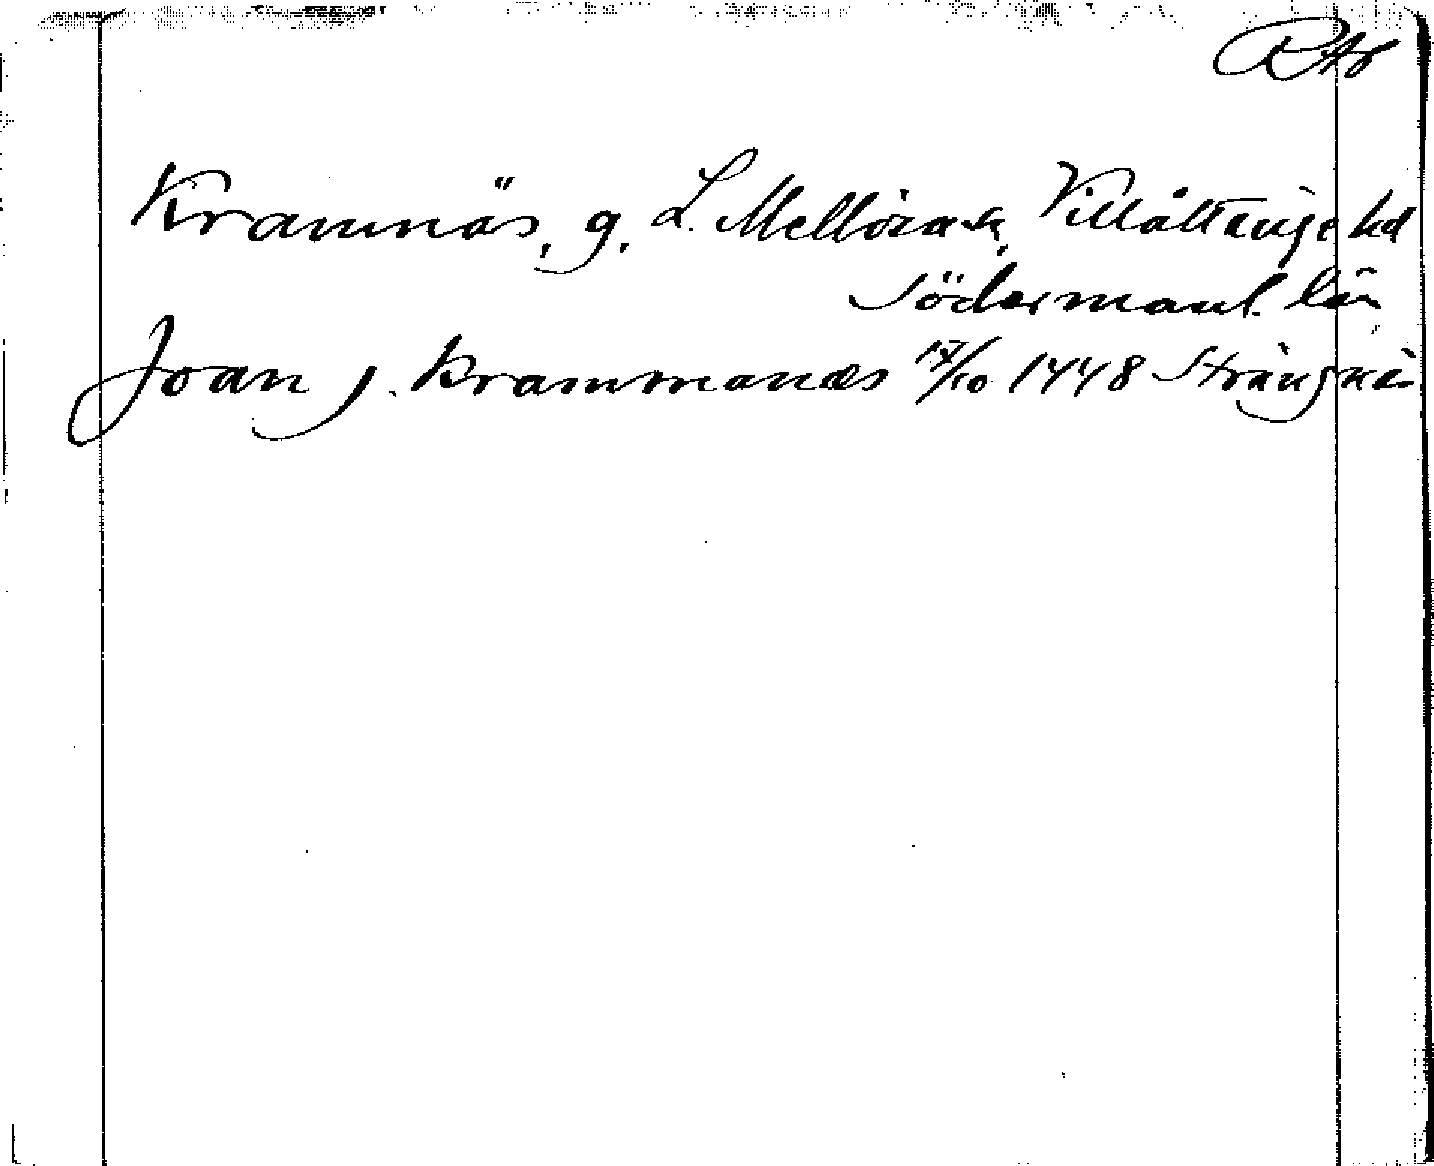 RAp
Kramnäs, g, L. Mellösa sn, Villåttinge hd
Södermanl. län
Joan j. krammanæs 17/10 1448 Strängnäs